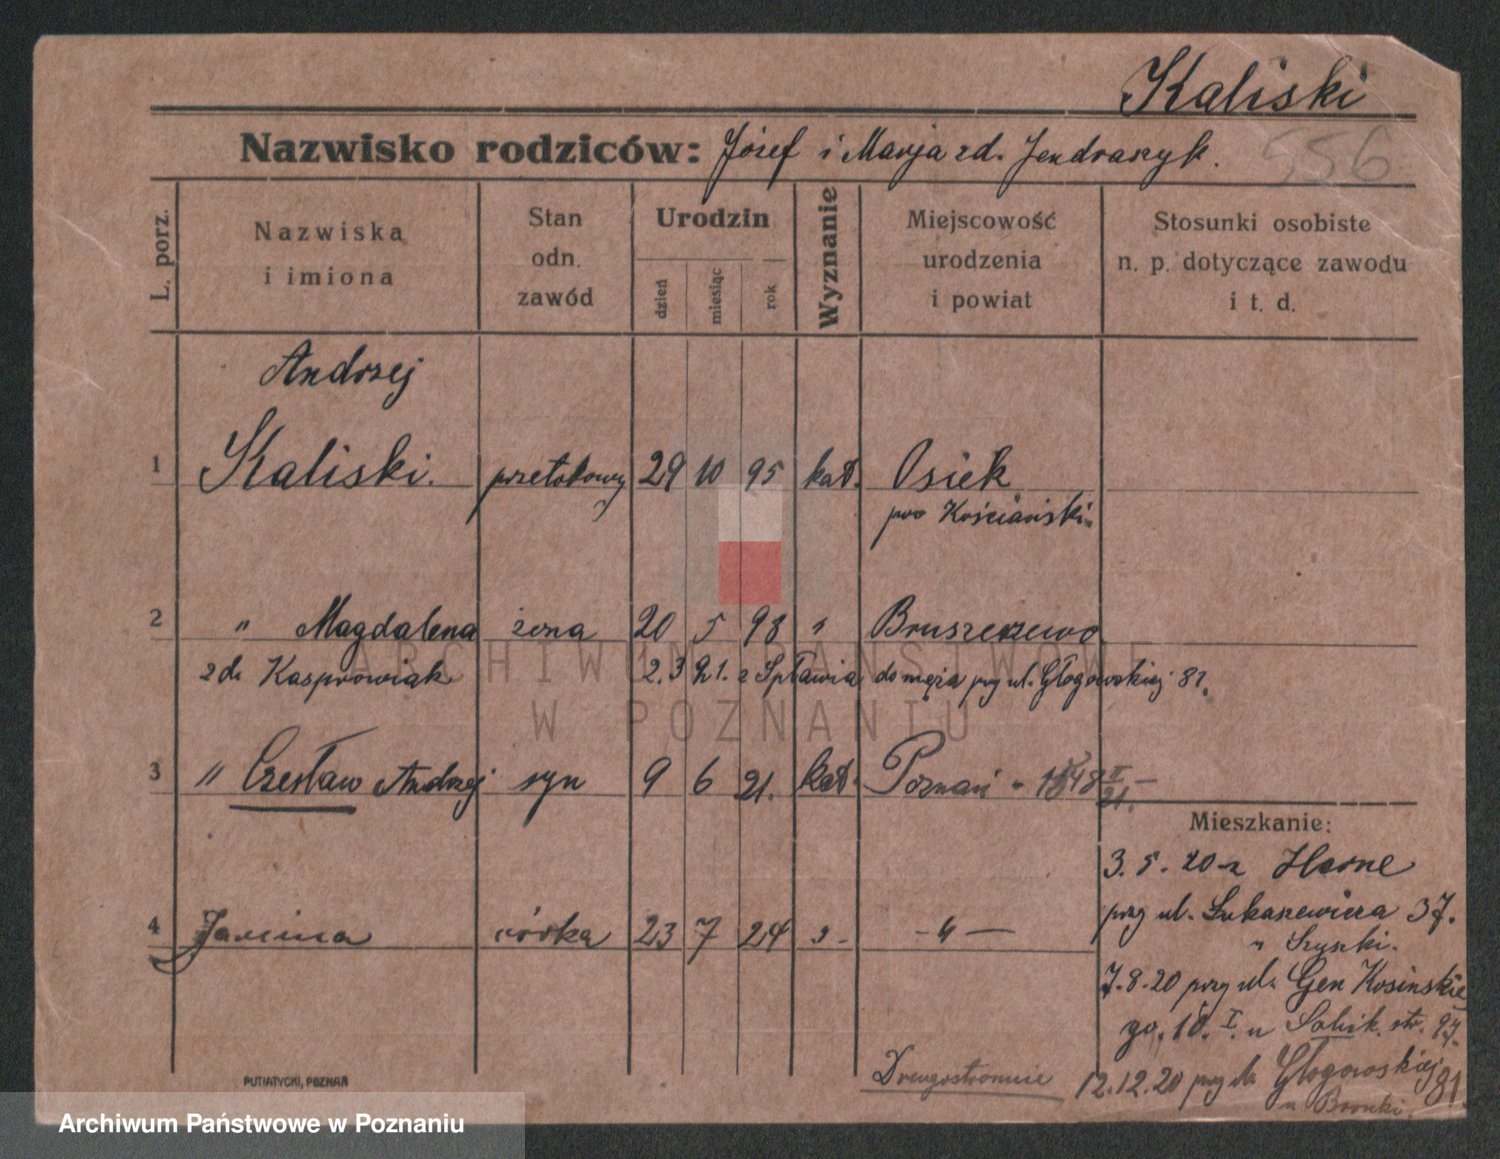 Kaliski
Nazwisko rodziców: Józef i Marja zd. Jendraszyk.
556
L. porz.
Nazwiska i imiona
Stan odn. zawód
Urodzin
dzień
miesiąc
rok
Wyznanie
Miejscowość urodzenia i powiat
Stosunki osobiste n. p. dotyczące zawodu i t. d.
Andrzej
1 Kaliski. przetokowy 29 10 95 kat. Osiek
pow Kościański.
2 " Magdalena żona 20 5 98 " Bruszczewo
zd. Kasprowiak 2.3 21. z Spławia do męża przy ul. Głogowskiej 81.
3 " Czesław Andrzej syn 9 6 21. kat. Poznań
4 Janina córka 23 7 24 " - " -
Mieszkanie:
3. 5. 20 z Herne
przy ul. Łukaszewicza 37.
" Szyszki.
7.8.20 przy ul. Gen Kosińskie
go. 10. I. u str. 97.
12.12.20 przy ul. Głogowskiej 81
u Bronki.
Drugostronnie
PUTIATYCKI, POZNAŃ
ARCHIWUM PAŃSTWOWE
W POZNANIU
Archiwum Państwowe w Poznaniu